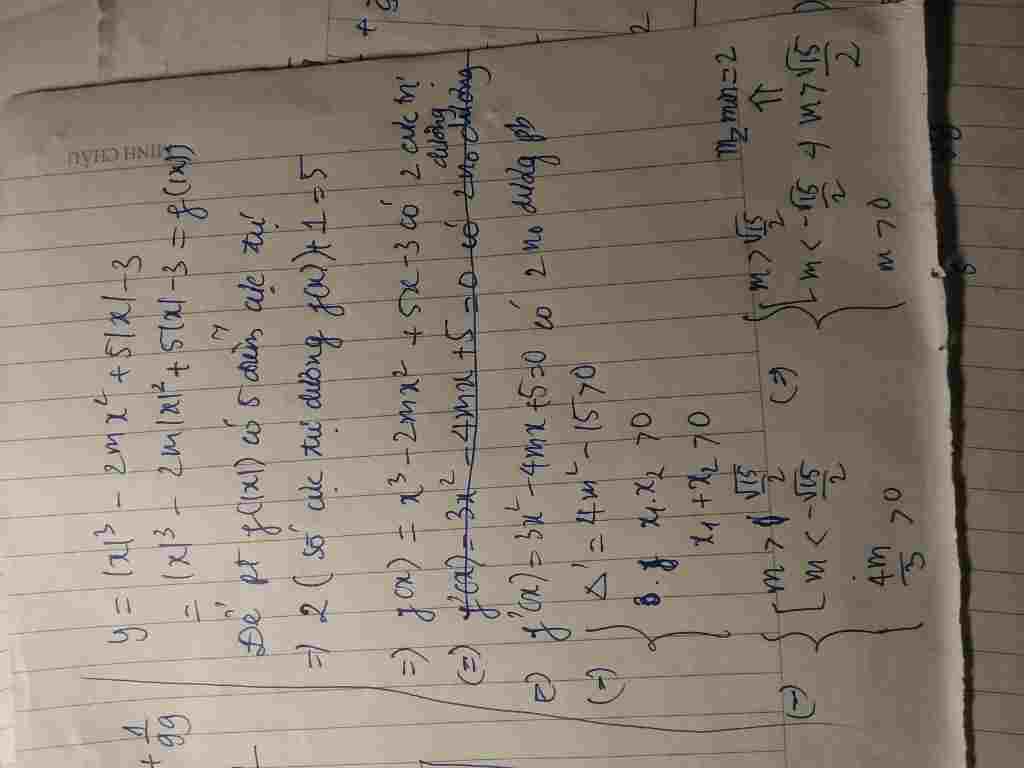 MINH CHÂU
y = |x|³ - 2mx² + 5|x| - 3
= |x|³ - 2m|x|² + 5|x| - 3 = f(|x|)
Để pt f(|x|) có 5 điểm cực trị
=> 2 (số cực trị dương f(x)) + 1 = 5
=> f(x) = x³ - 2mx² + 5x - 3 có 2 cực trị dương
(=) f'(x) = 3x² - 4mx + 5 = 0 có 2 no dương
(=) f'(x) = 3x² - 4mx + 5 = 0 có 2 no dương pb
(=) { Δ' = 4m² - 15 > 0
x₁.x₂ > 0
x₁ + x₂ > 0
(=) { [ m > √15/2
m < -√15/2
4m/3 > 0
(=) { [ m > √15/2
m < -√15/2
m > 0
=> m > √15/2
m min = 2
+ 1/99